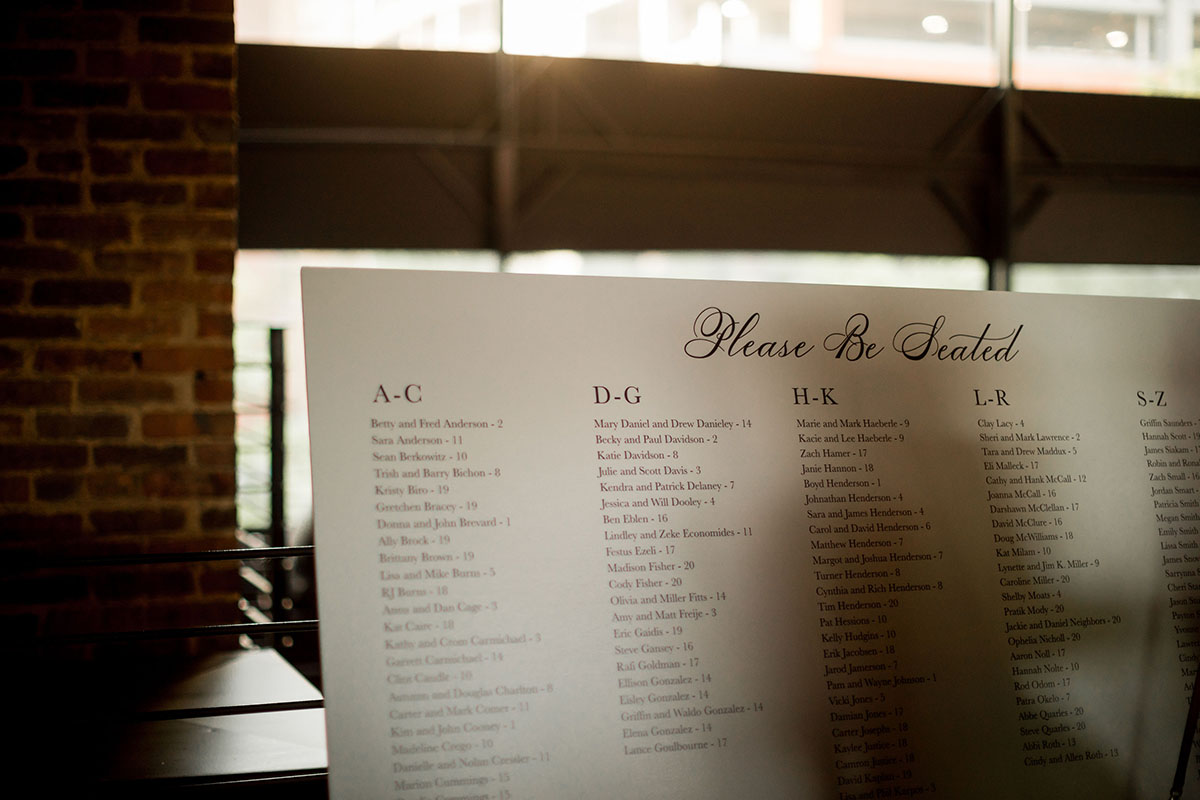 Please Be Seated
A-C
Betty and Fred Anderson - 2
Sara Anderson - 11
Sean Berkowitz - 10
Trish and Barry Bichon - 8
Kristy Biro - 19
Gretchen Bracey - 19
Donna and John Brevard - 1
Ally Brock - 19
Brittany Brown - 19
Lisa and Mike Burns - 5
RJ Burns - 18
Anna and Dan Cage - 3
Kat Caire - 18
Kathy and Crom Carmichael - 3
Garrett Carmichael - 14
Clint Caudle - 10
Autumn and Douglas Charlton - 8
Carter and Mark Comer - 11
Kim and John Cooney - 1
Madeline Crego - 10
Danielle and Nolan Cressler - 11
Marion Cummings - 15
Cummings - 15
D-G
Mary Daniel and Drew Danieley - 14
Becky and Paul Davidson - 2
Katie Davidson - 8
Julie and Scott Davis - 3
Kendra and Patrick Delaney - 7
Jessica and Will Dooley - 4
Ben Eblen - 16
Lindley and Zeke Economides - 11
Festus Ezeli - 17
Madison Fisher - 20
Cody Fisher - 20
Olivia and Miller Fitts - 14
Amy and Matt Freije - 3
Eric Gaidis - 19
Steve Gansey - 16
Rafi Goldman - 17
Ellison Gonzalez - 14
Eisley Gonzalez - 14
Griffin and Waldo Gonzalez - 14
Elena Gonzalez - 14
Lance Goulbourne - 17
H-K
Marie and Mark Haeberle - 9
Kacie and Lee Haeberle - 9
Zach Hamer - 17
Janie Hannon - 18
Boyd Henderson - 1
Johnathan Henderson - 4
Sara and James Henderson - 4
Carol and David Henderson - 6
Matthew Henderson - 7
Margot and Joshua Henderson - 7
Turner Henderson - 8
Cynthia and Rich Henderson - 8
Tim Henderson - 20
Pat Hessions - 10
Kelly Hudgins - 10
Erik Jacobsen - 18
Jarod Jamerson - 7
Pam and Wayne Johnson - 1
Vicki Jones - 5
Damian Jones - 17
Carter Josephs - 18
Kaylee Justice - 18
Camron Justice - 18
David Kaplan - 19
Lisa and Phil Karpos - 3
L-R
Clay Lacy - 4
Sheri and Mark Lawrence - 2
Tara and Drew Maddux - 5
Eli Malleck - 17
Cathy and Hank McCall - 12
Joanna McCall - 16
Darshawn McClellan - 17
David McClure - 16
Doug McWilliams - 18
Kat Milam - 10
Lynette and Jim K. Miller - 9
Caroline Miller - 20
Shelby Moats - 4
Pratik Mody - 20
Jackie and Daniel Neighbors - 20
Ophelia Nicholl - 20
Aaron Noll - 17
Hannah Nolte - 10
Rod Odom - 17
Patra Okelo - 7
Abbe Quarles - 20
Steve Quarles - 20
Abbi Roth - 13
Cindy and Allen Roth - 13
S-Z
Griffin Saunders -
Hannah Scott -
James Siakam -
Robin and
Zach Small - 16
Jordan Smart -
Patricia Smith
Megan Smith
Emily Smith
Lissa Smith
James
Sarynna
Cheri
Jason
Payton
Yvonne